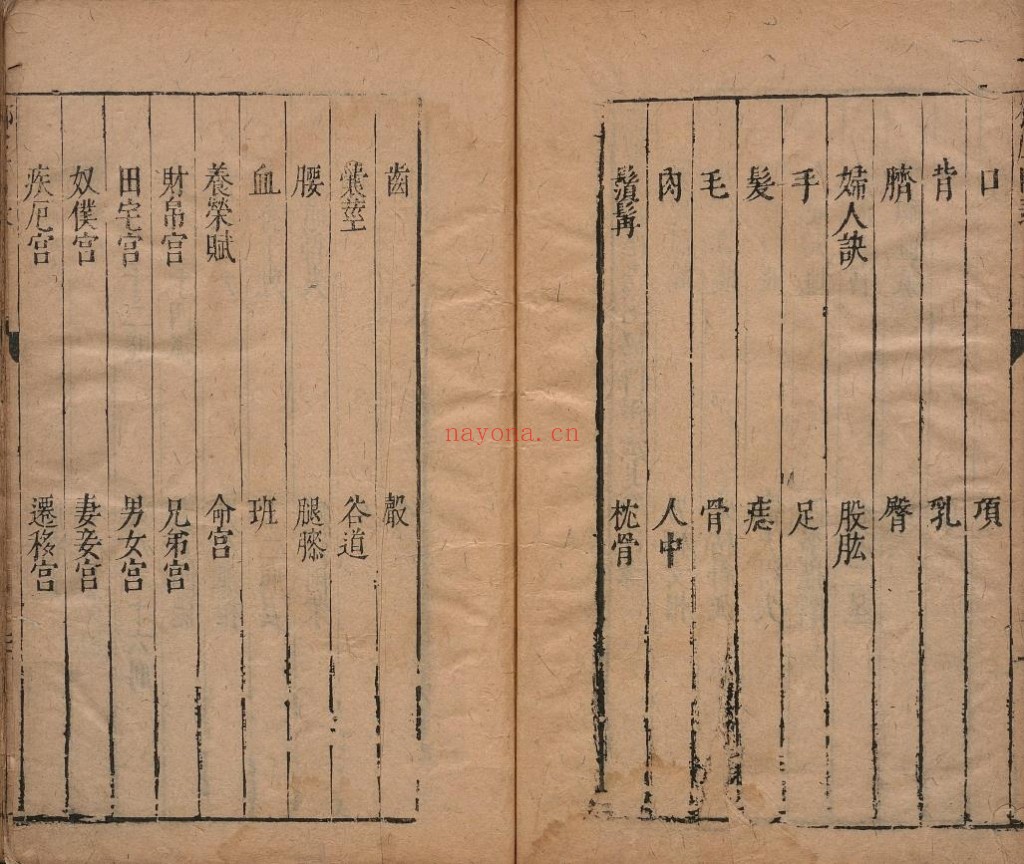 口 項
背 乳
臍 臀
婦人訣 股肱
手 足
髮 痣
毛 骨
肉 人中
鬚髯 枕骨
齒
囊莖 谷道
腰 腿膝
血 班
養榮賦 命宮
財帛宮 兄弟宮
田宅宮 男女宮
奴僕宮 妻妾宮
疾厄宮 遷移宮
nayona.cn